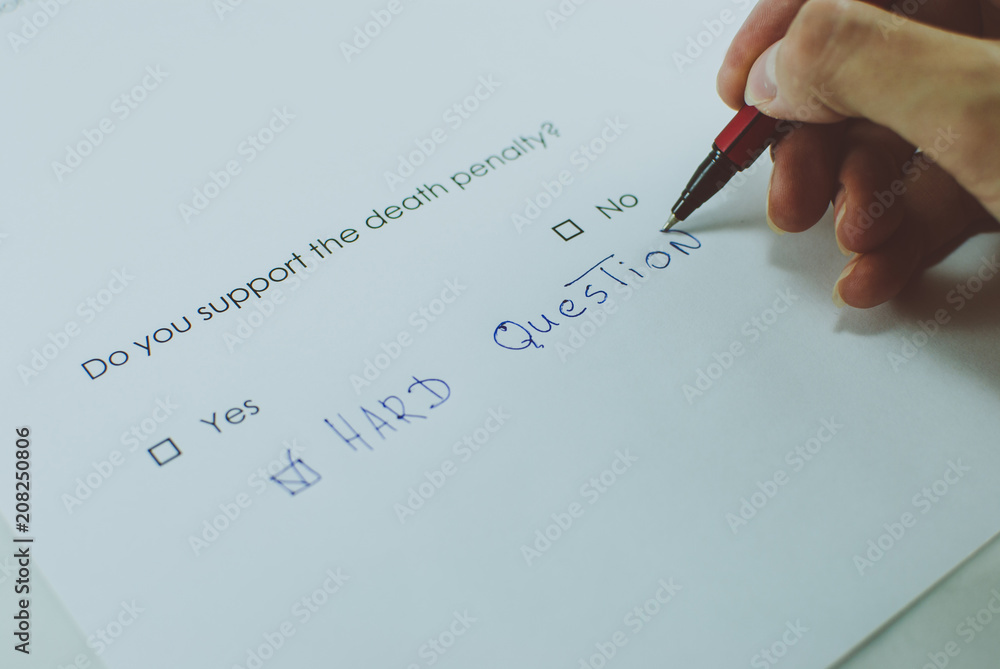 Do you support the death penalty?
Yes
No
HARD QUESTION
Adobe Stock | #208250806
Adobe Stock